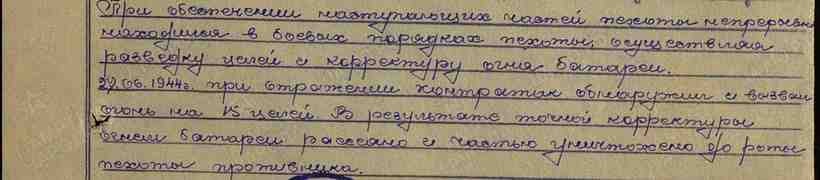 При обеспечении наступающих частей пехоты непрерывно
находился в боевых порядках пехоты, осуществляя
разведку целей и корректуру огня батареи.
29.06.1944г. при отражении контратак обнаружил и вызвал
огонь на 15 целей. В результате точной корректуры
огнем батареи рассеяно и частью уничтожено до роты
пехоты противника.